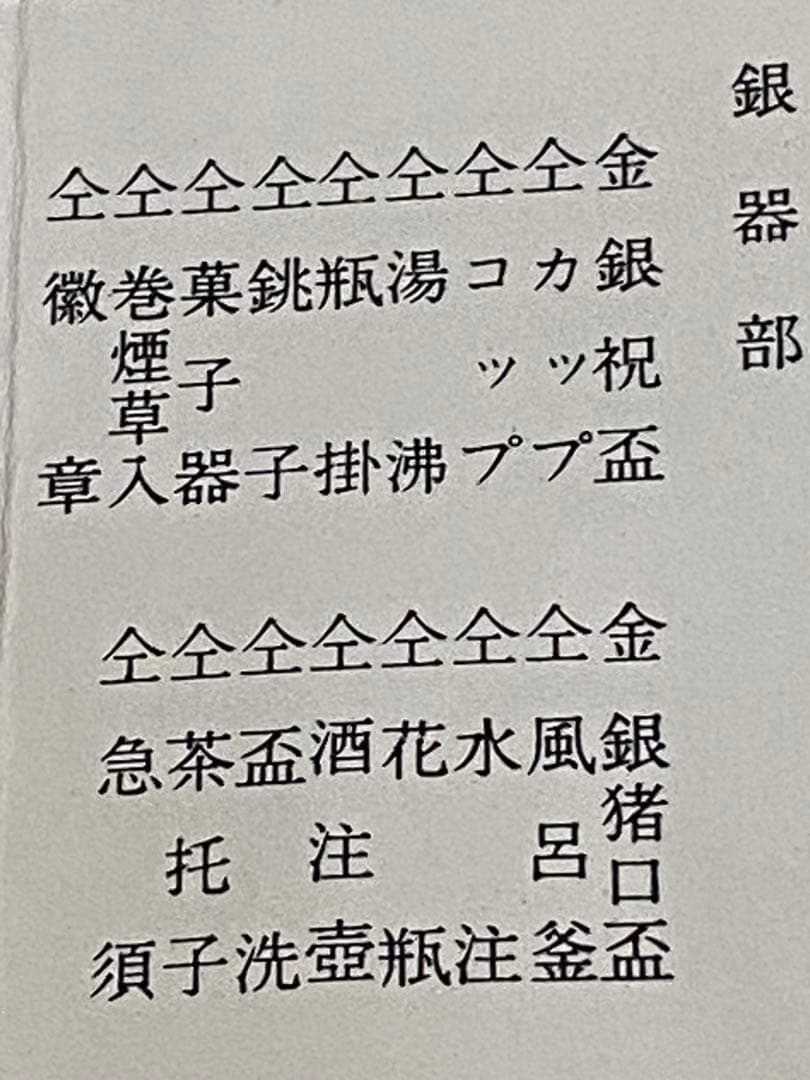 銀器部
金銀祝盃
仝カップ
仝コップ
仝湯沸
仝瓶掛
仝銚子
仝菓子器
仝巻煙草入
仝徽章
金銀猪口盃
仝風呂釜
仝水注
仝花瓶
仝酒注壺
仝盃洗
仝茶托子
仝急須